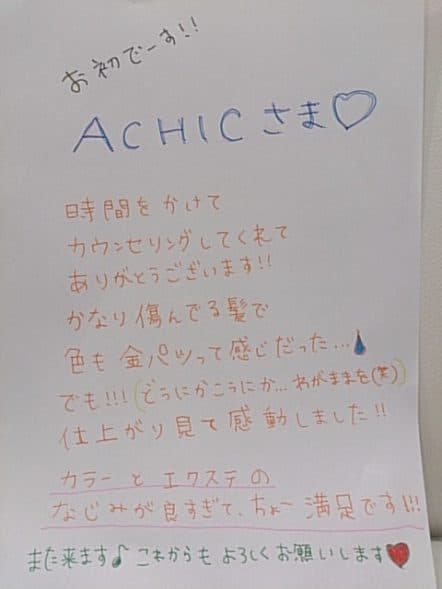 お初でーす!!
ACHICさま♡
時間をかけて
カウンセリングしてくれて
ありがとうございます!!
かなり傷んでる髪で
色も金パツって感じだった…💧
でも!!!(どうにかこうにか…わがままを(笑))
仕上がり見て感動しました!!
カラーとエクステの
なじみが良すぎて、ちょー満足です!!!
また来ます♪これからもよろしくお願いします♥